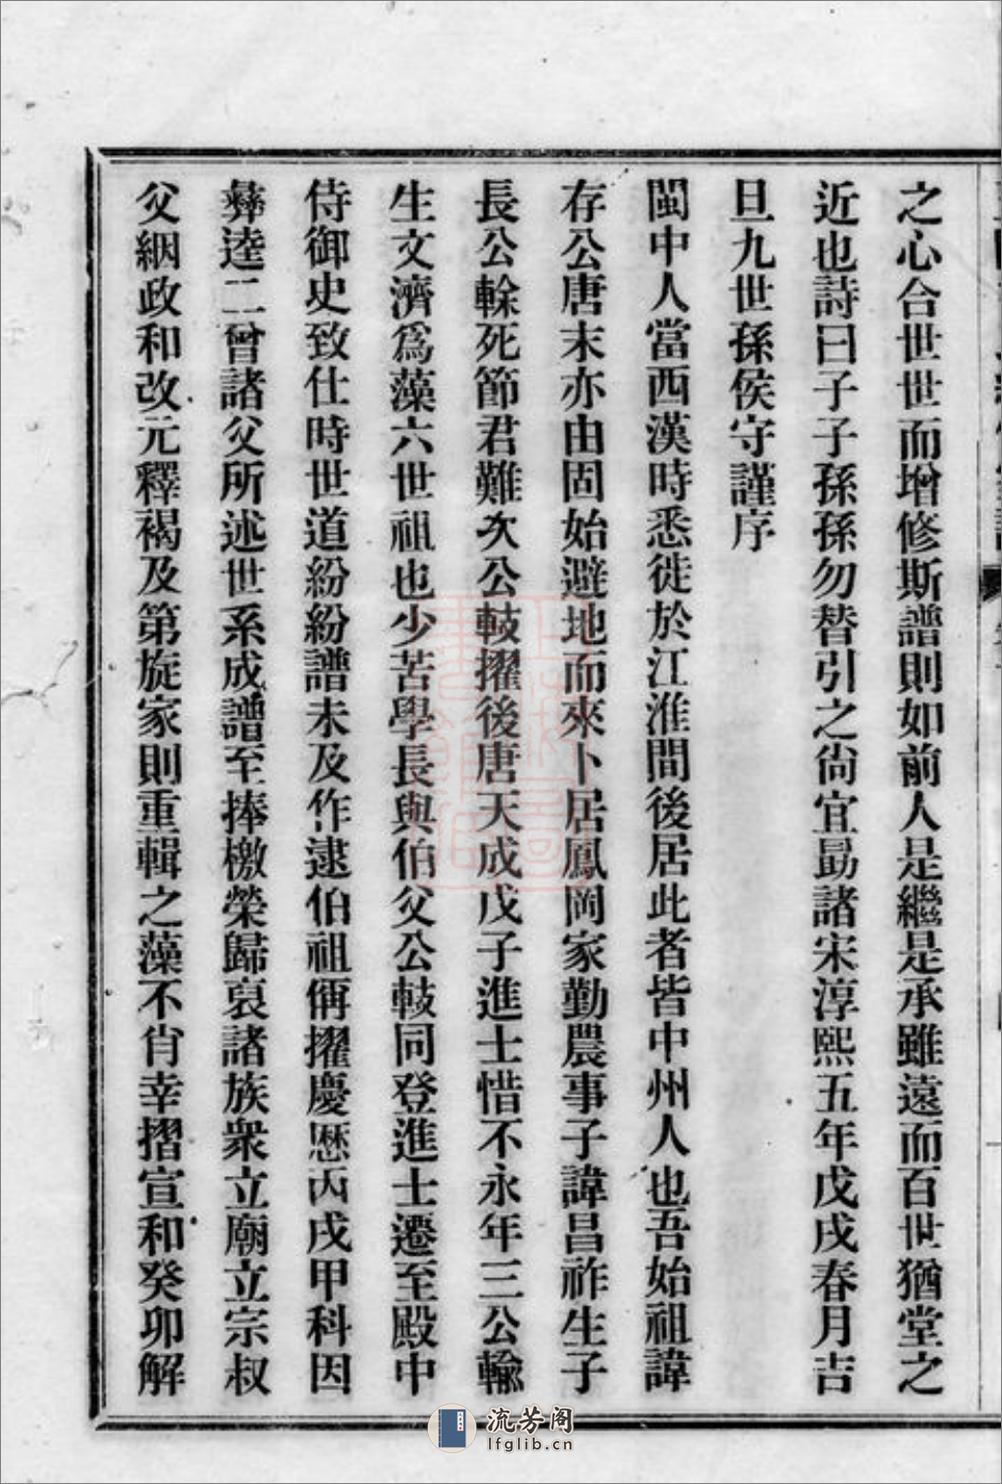 之心合世世而增修斯譜則如前人是繼是承雖遠而百世猶堂之
近也詩曰子子孫孫勿替引之尙宜勗諸宋淳熙五年戊戌春月吉
旦九世孫侯守謹序
閩中人當西漢時悉徙於江淮間後居此者皆中州人也吾始祖諱
存公唐末亦由固始避地而來卜居鳳岡家勤農事子諱昌祚生子
長公輅死節君難次公輅擢後唐天成戊子進士惜不永年三公輸
生文濟爲藻六世祖也少苦學長與伯父公輅同登進士遷至殿中
侍御史致仕時世道紛紛譜未及作逮伯祖偁擢慶厯丙戌甲科因
彝逵二曾諸父所述世系成譜至捧檄榮歸裒諸族衆立廟立宗叔
父絪政和改元釋褐及第旋家則重輯之藻不肖幸摺宣和癸卯解
流芳阁
lfglib.cn